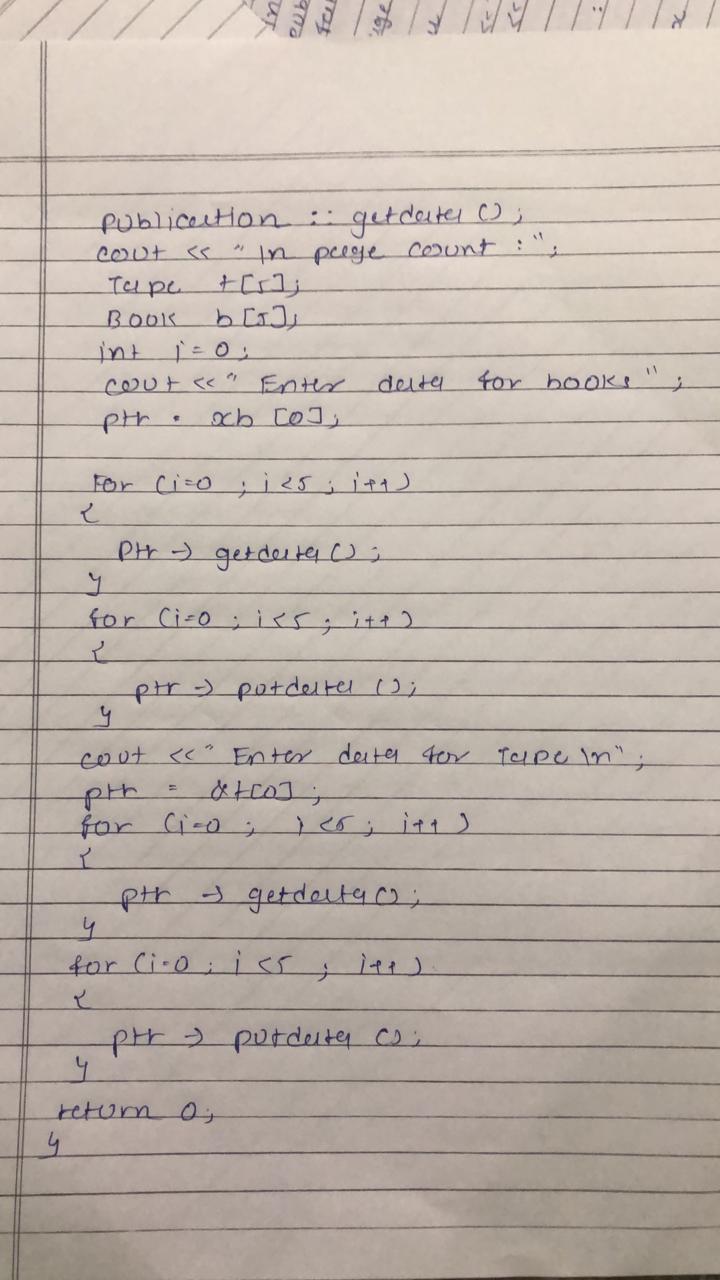 publication :: getdata ();
cout << "\n page count :";
Tape t[5];
Book b[5];
int i=0;
cout << " Enter data for books";
ptr = &b [0];
For (i=0 ; i<5 ; i++)
{
ptr -> getdata ();
}
for (i=0 ; i<5 ; i++)
{
ptr -> putdata ();
}
cout << " Enter data for Tape \n";
ptr = &t[0];
for (i=0 ; i<5 ; i++)
{
ptr -> getdata();
}
for (i=0 ; i<5 ; i++)
{
ptr -> putdata ();
}
return 0;
}